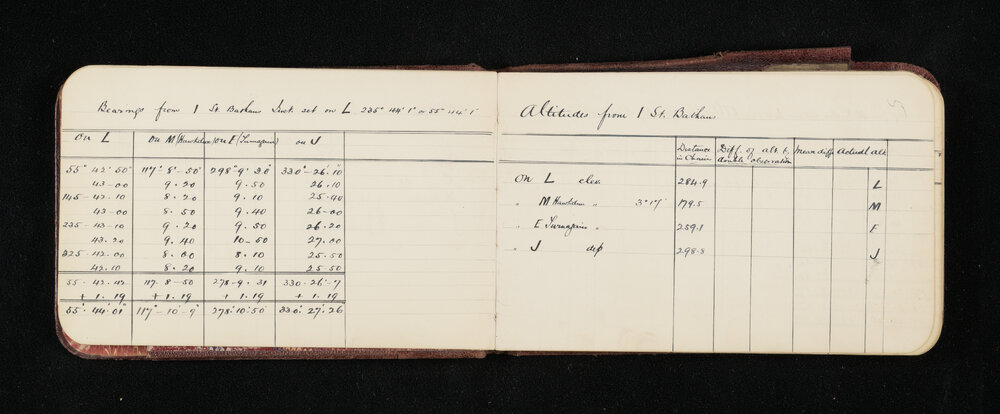 Bearings from I St. Bathans Inst. set on L 235° 44' 1" or 55° 44' 1"
on L on M (Hawkdun) on E (Turnagain) on J
55° 42' 50" 117° 8' 50" 298° 9' 20" 330° - 26' 10"
43 - 00 9 . 20 9 . 50 26 . 10
145 - 42 . 10 8 . 20 9 . 10 25 - 40
43 - 00 8 . 50 9 . 40 26 - 00
235 - 43 - 10 9 . 20 9 . 50 26 . 20
43 . 20 9 . 40 10 - 50 27 . 00
325 - 42 . 00 8 . 00 8 . 10 25 . 50
42 . 10 8 . 20 9 . 10 25 - 50
55 . 42 . 42 117 . 8 - 50 278 - 9 . 31 330 . 26' - 7
+ 1 . 19 + 1 . 19 + 1 . 19 + 1 . 19
55° . 44' . 01" 117° - 10' - 9" 278° . 10' . 50" 330° . 27' . 26
Altitudes from I St. Bathans
Distance in Chains Diff. of alt by double observation Mean diff Actual alt
On L elev 284.9 L
" M Hawkdun " 3° 1' 179.5 M
" E Turnagain " 259.1 E
" J dep 298.8 J